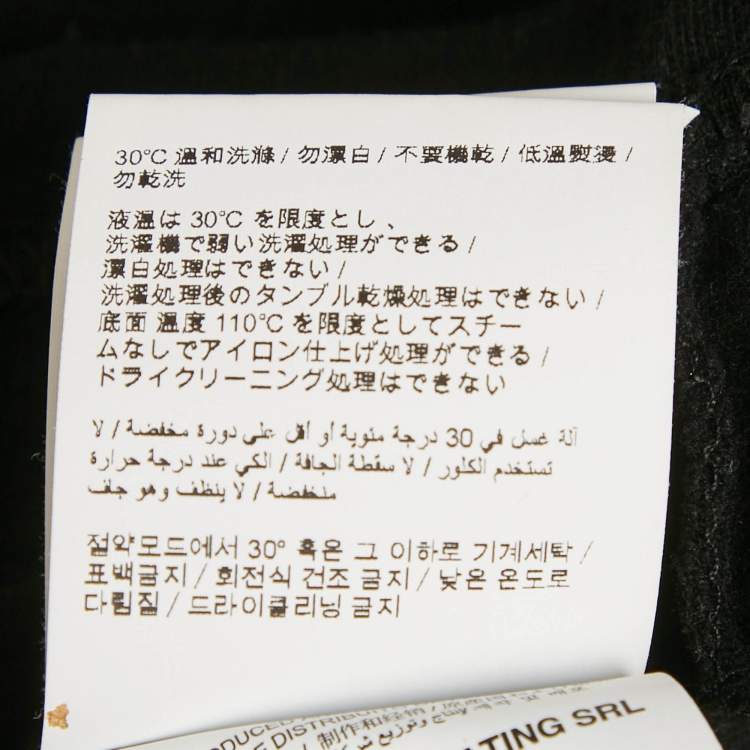 30°C 溫和洗滌 / 勿漂白 / 不要機乾 / 低溫熨燙 /
勿乾洗
液温は 30°C を限度とし、
洗濯機で弱い洗濯処理ができる /
漂白処理はできない /
洗濯処理後のタンブル乾燥処理はできない /
底面 温度 110°C を限度としてスチー
ムなしでアイロン仕上げ処理ができる /
ドライクリーニング処理はできない
آلة غسل في 30 درجة مئوية أو أقل على دورة مخفضة / لا
تستخدم الكلور / لا سقطة الجافة / الكي عند درجة حرارة
منخفضة / لا ينظف وهو جاف
절약모드에서 30° 혹은 그 이하로 기계세탁 /
표백금지 / 회전식 건조 금지 / 낮은 온도로
다림질 / 드라이클리닝 금지
DISTRIBU
制作和经销
TING SRL